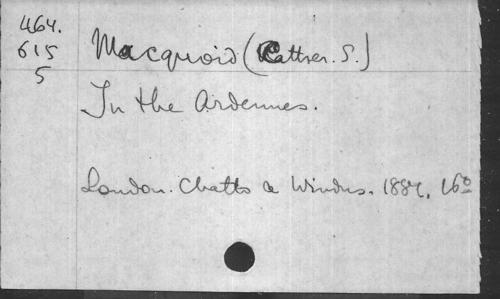 464.
615
5
Macquoid (Kather. S.)
In the Ardennes.
London. Chatto & Windus. 1887. 16º